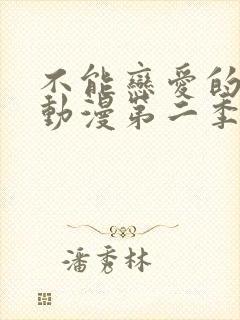 不能戀愛的
動漫第二季
潘秀林